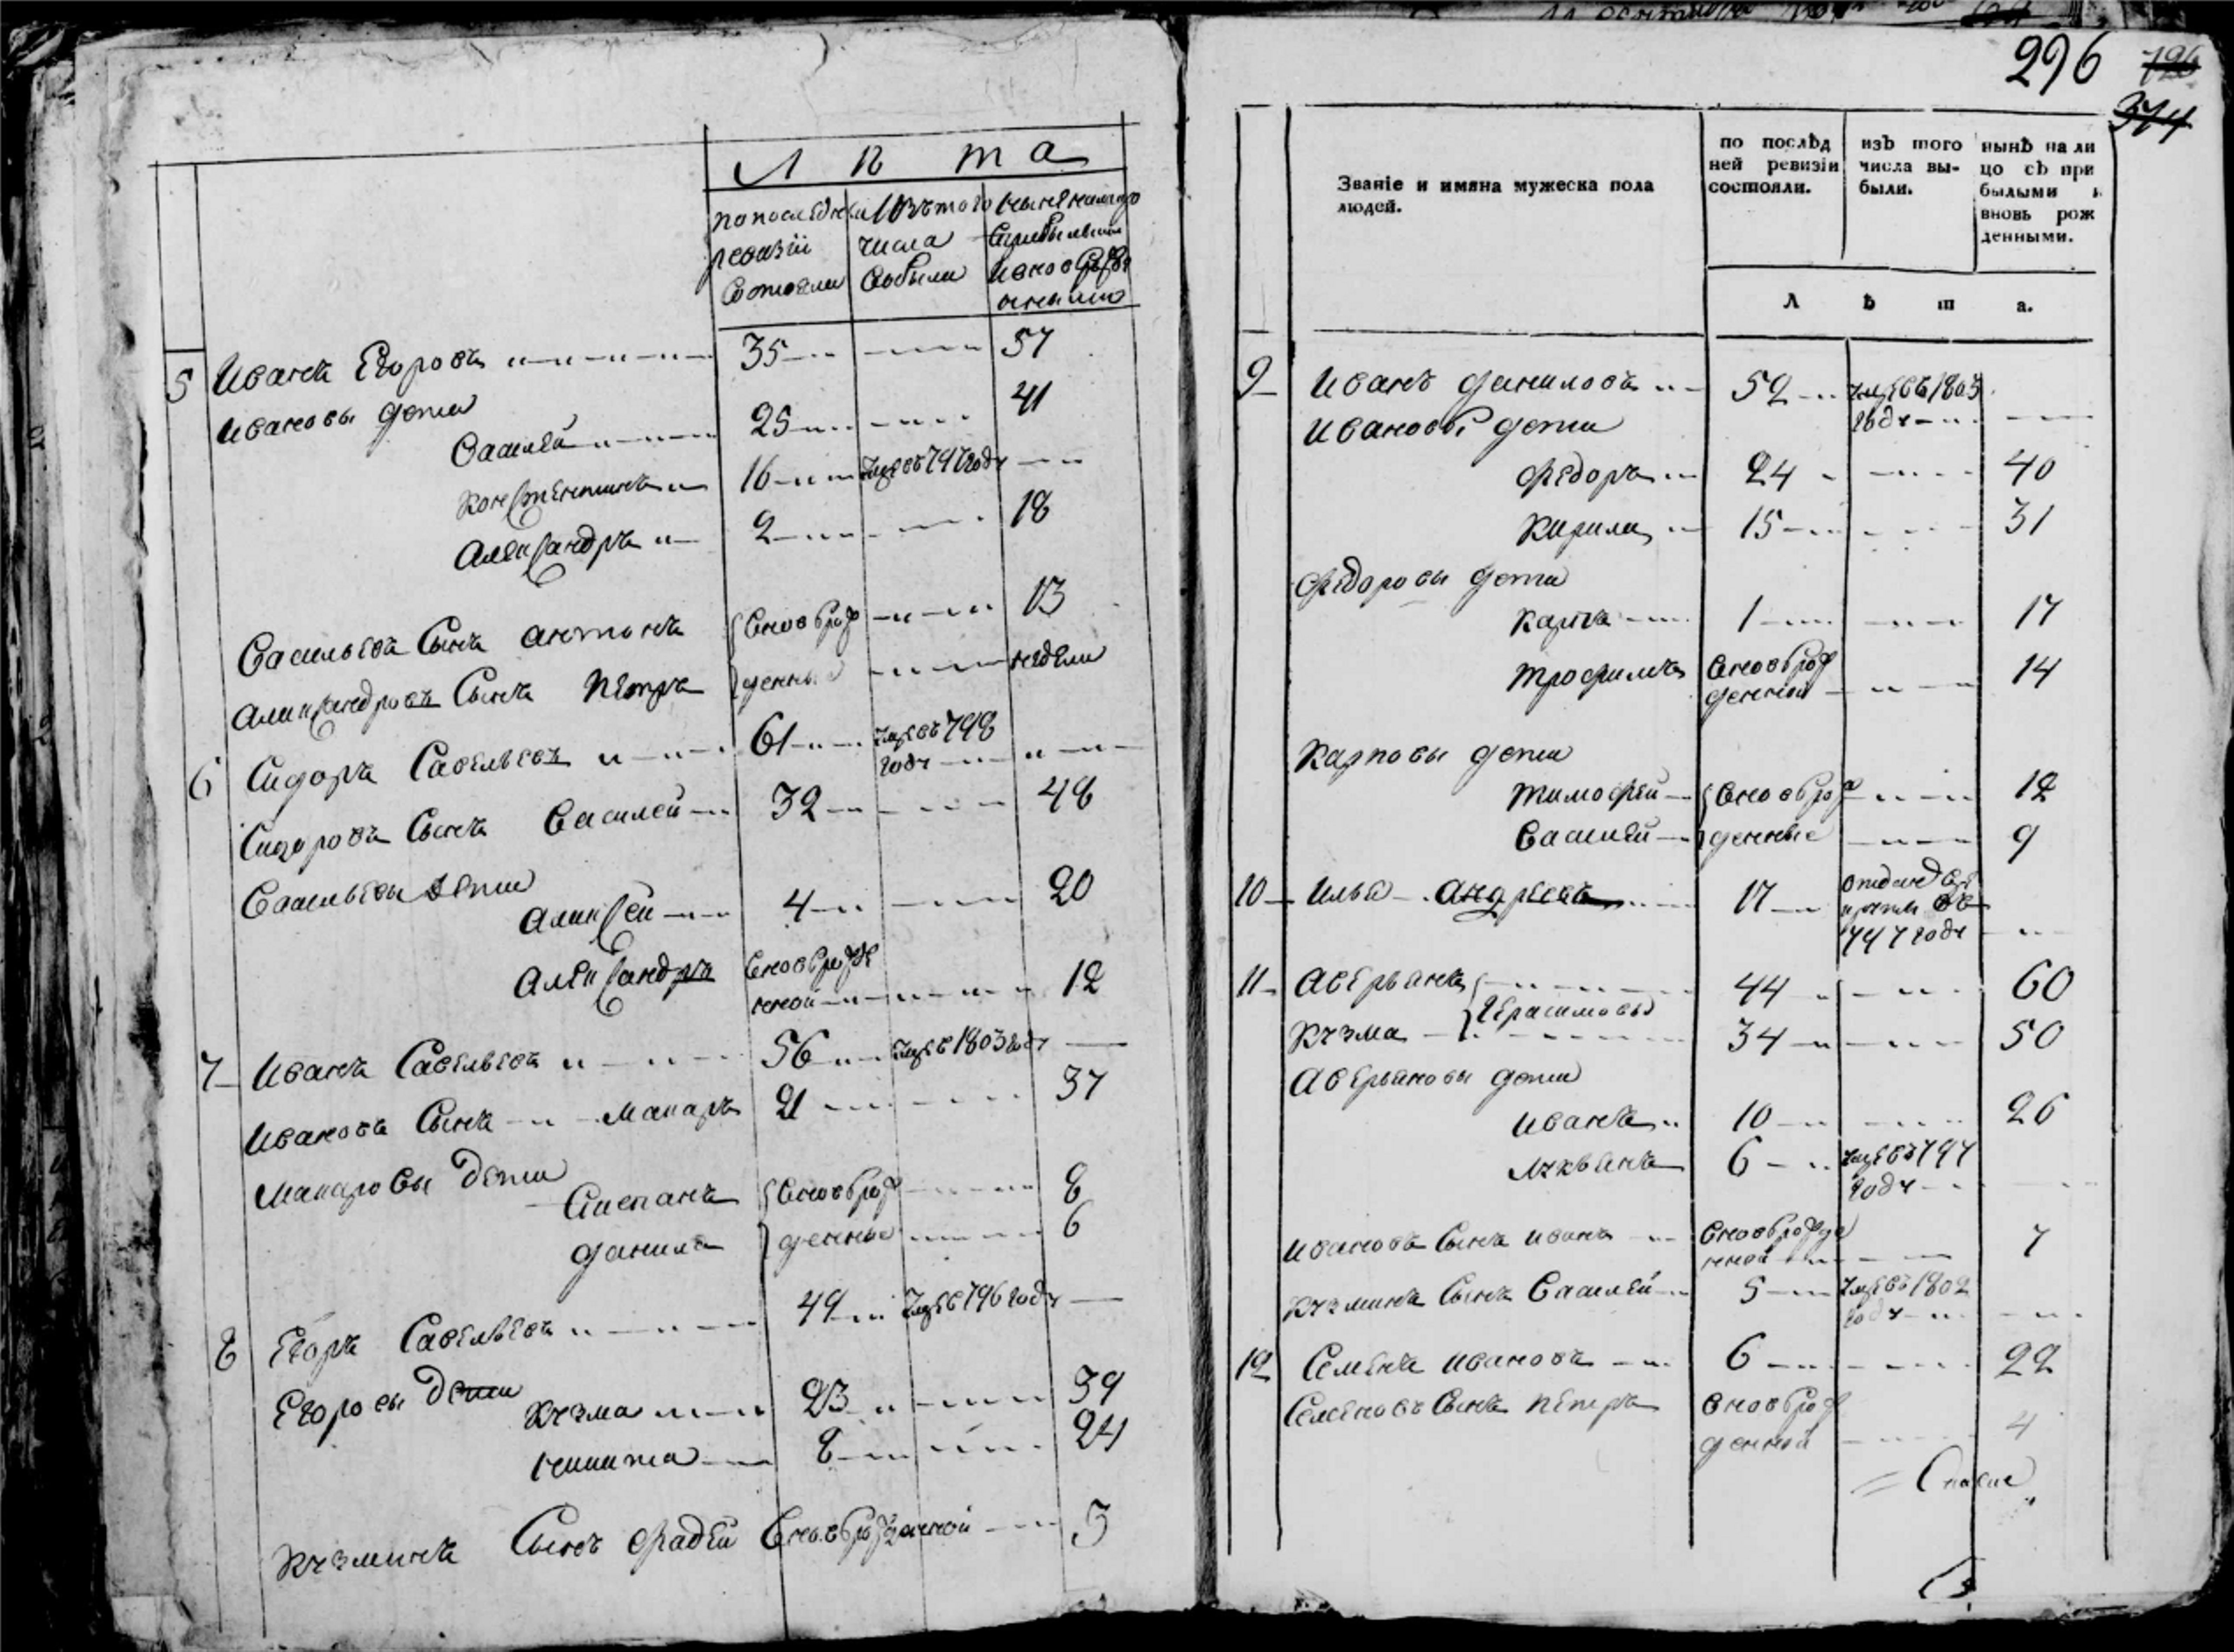 Л ѣ т а
по последней
ревизіи
состояли
изъ того
числа
выбыли
ныне налицо
съ прибылыми
и вновь рож
денными
5 Иванъ Егоровъ 35 57
Ивановы дети
Василей 25 41
Констентинъ 16 умре въ 797 году
Александръ 2 18
Васильевъ сынъ антонъ вновь рож 13
Александровъ сынъ Петръ денные недели
6 Сидоръ Савельевъ 61 умре въ 798
году
Сидоровъ сынъ Василей 32 48
Васильевы дети
Алексей 4 20
Александръ вновь рожде
нной 12
7 Иванъ Савельевъ 56 умре въ 1803 году
Ивановъ сынъ Макаръ 21 37
Макаровы дети
Степанъ вновь рож 8
данила денные 6
8 Егоръ Савельевъ 49 умре въ 796 году
Егоровы дети
Кузма 23 39
никита 8 24
Кузминъ сынъ Фадей вновь рожденной 3
296 726
374
Званіе и имяна мужеска пола
людей.
по послѣд
ней ревизіи
состояли.
изъ того
числа вы-
были.
нынѣ на ли
цо съ при
былыми и
вновь рож
денными.
Л ѣ т а.
9 Иванъ даниловъ 52 умре въ 1803
году
Ивановы дети
Федоръ 24 40
Кирила 15 31
Федоровы дети
Карпъ 1 17
Трофимъ вновь рож
денной 14
Карповы дети
Тимофей вновь рож 12
Василей денные 9
10 Илья андреевъ 17 отдан в ре
круты въ
797 году
11 Аверьянъ 44 60
Герасимовы
Кузма 34 50
Аверьяновы дети
Иванъ 10 26
Лукьянъ 6 умре въ 797
году
Ивановъ сынъ иванъ вновь рожде
нной 7
Кузминъ сынъ Василей 5 умре въ 1802
году
12 Семенъ Ивановъ 6 22
Семеновъ сынъ Петръ вновь рож
денной 4